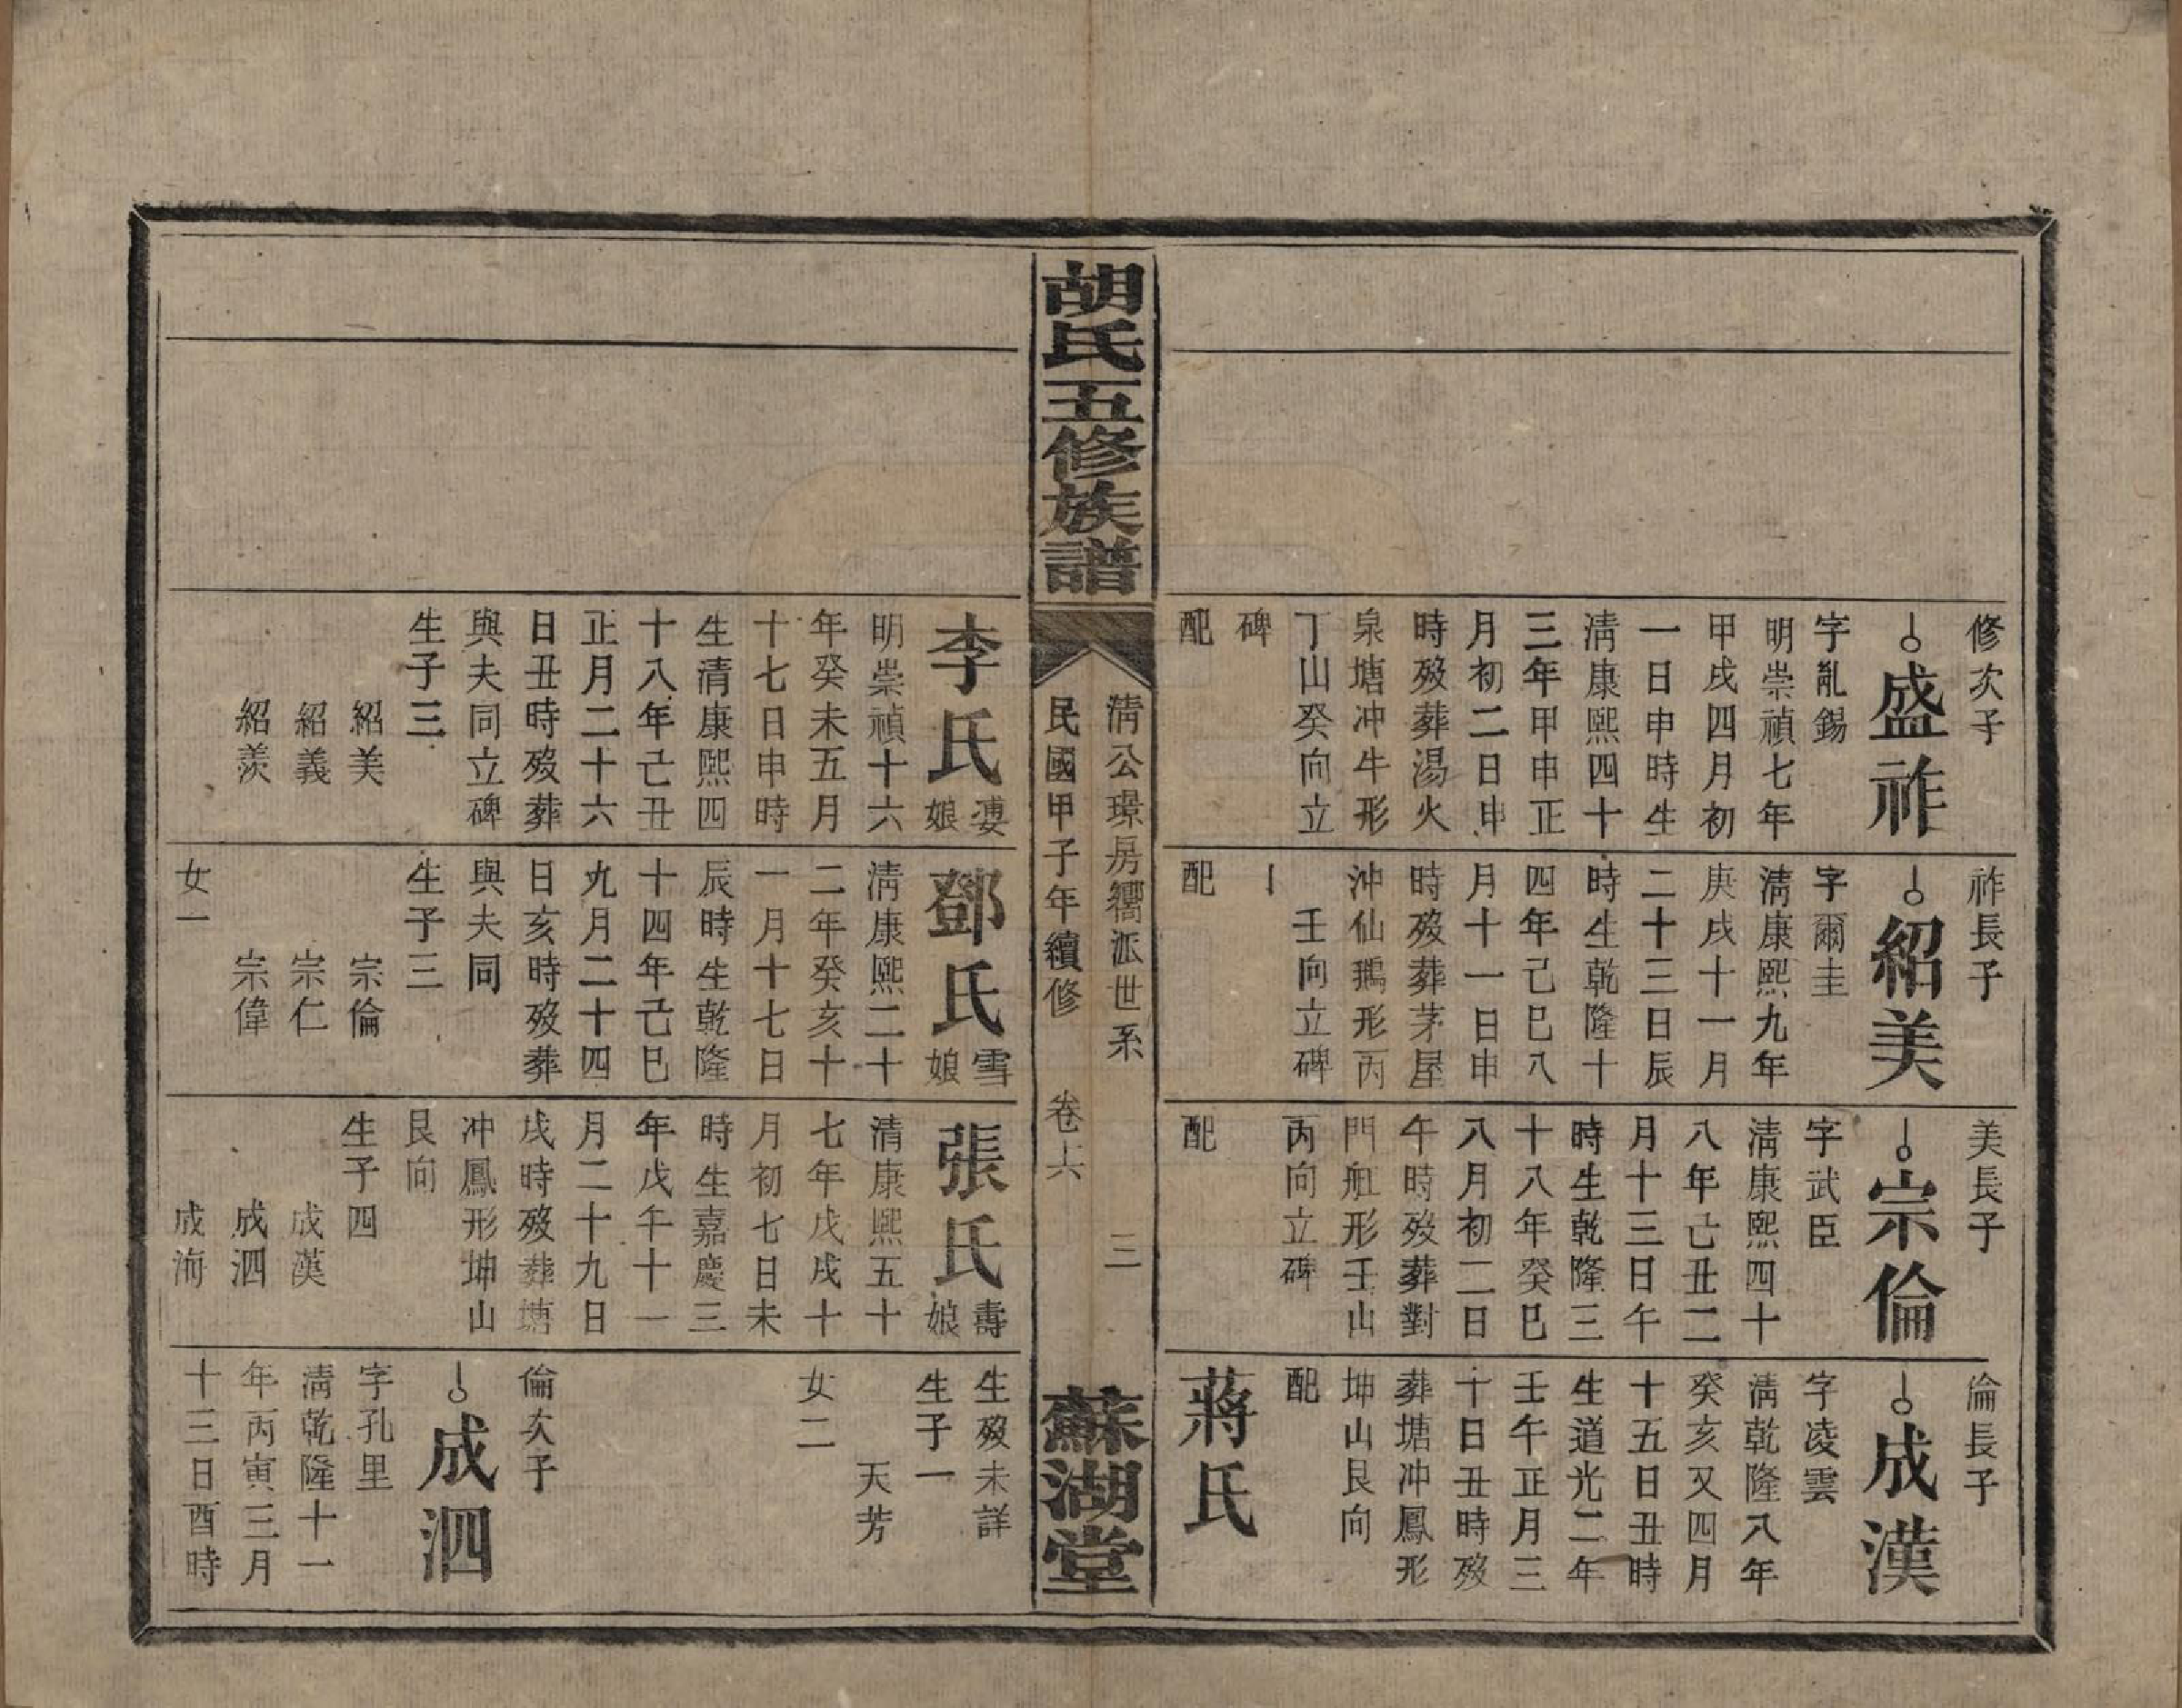 修次子
盛祚
字亂錫
明崇禎七年
甲戌四月初
一日申時生
淸康熙四十
三年甲申正
月初二日申
時歿葬湯火
泉塘冲牛形
丁山癸向立
碑
配
祚長子
紹美
字爾圭
淸康熙九年
庚戌十一月
二十三日辰
時生乾隆十
四年己巳八
月十一日申
時歿葬茅屋
沖仙鵝形丙
壬向立碑
配
美長子
宗倫
字武臣
淸康熙四十
八年己丑二
月十三日午
時生乾隆三
十八年癸巳
八月初二日
午時歿葬對
門船形壬山
丙向立碑
配
倫長子
成漢
字凌雲
淸乾隆八年
癸亥又四月
十五日丑時
生道光二年
壬午正月三
十日丑時歿
葬塘冲鳳形
坤山艮向
配
蔣氏
胡氏五修族譜
淸公璟房衢派世系 三
民國甲子年續修 卷六
蘇湖堂
李氏婆娘
明崇禎十六
年癸未五月
十七日申時
生清康熙四
十八年己丑
正月二十六
日丑時歿葬
與夫同立碑
生子三
紹美
紹義
紹羨
鄧氏雪娘
淸康熙二十
二年癸亥十
一月十七日
辰時生乾隆
十四年己巳
九月二十四
日亥時歿葬
與夫同
生子三
宗倫
宗仁
宗偉
女一
張氏壽娘
清康熙五十
七年戊戌十
月初七日未
時生嘉慶三
年戊午十一
月二十九日
戌時歿葬塘
冲鳳形坤山
艮向
生子四
成漢
成泗
成海
生歿未詳
生子一
天芳
女二
倫次子
成泗
字孔里
淸乾隆十一
年丙寅三月
十三日酉時